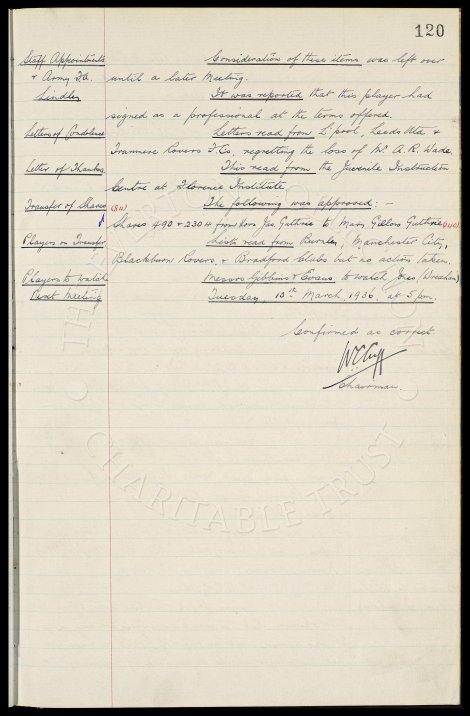 120
Staff Appointments Consideration of these items was left over
& Army F.A. until a later Meeting.
Lindley It was reported that this player had
signed as a professional at the terms offered.
Letters of Condolence Letters read from L'pool, Leeds Utd &
Tranmere Rovers F. Co. regretting the loss of Mr. A. R. Wade.
Letter of Thanks This read from the Juvenile Instruction
Centre at Florence Institute.
Transfer of Shares The following was approved: -
Shares 490 & 2304 from Jas. Guthrie to Mary Guthrie
Players on Transfer Lists read from Burnley, Manchester City,
Blackburn Rovers & Bradford Clubs but no action taken.
Players to watch Messrs Gibbins & Evans to watch Jones (Wrexham)
Next Meeting Tuesday 10th March 1936 at 5 pm.
Confirmed as correct
W.C. Cuff
Chairman.
CHARITABLE TRUST